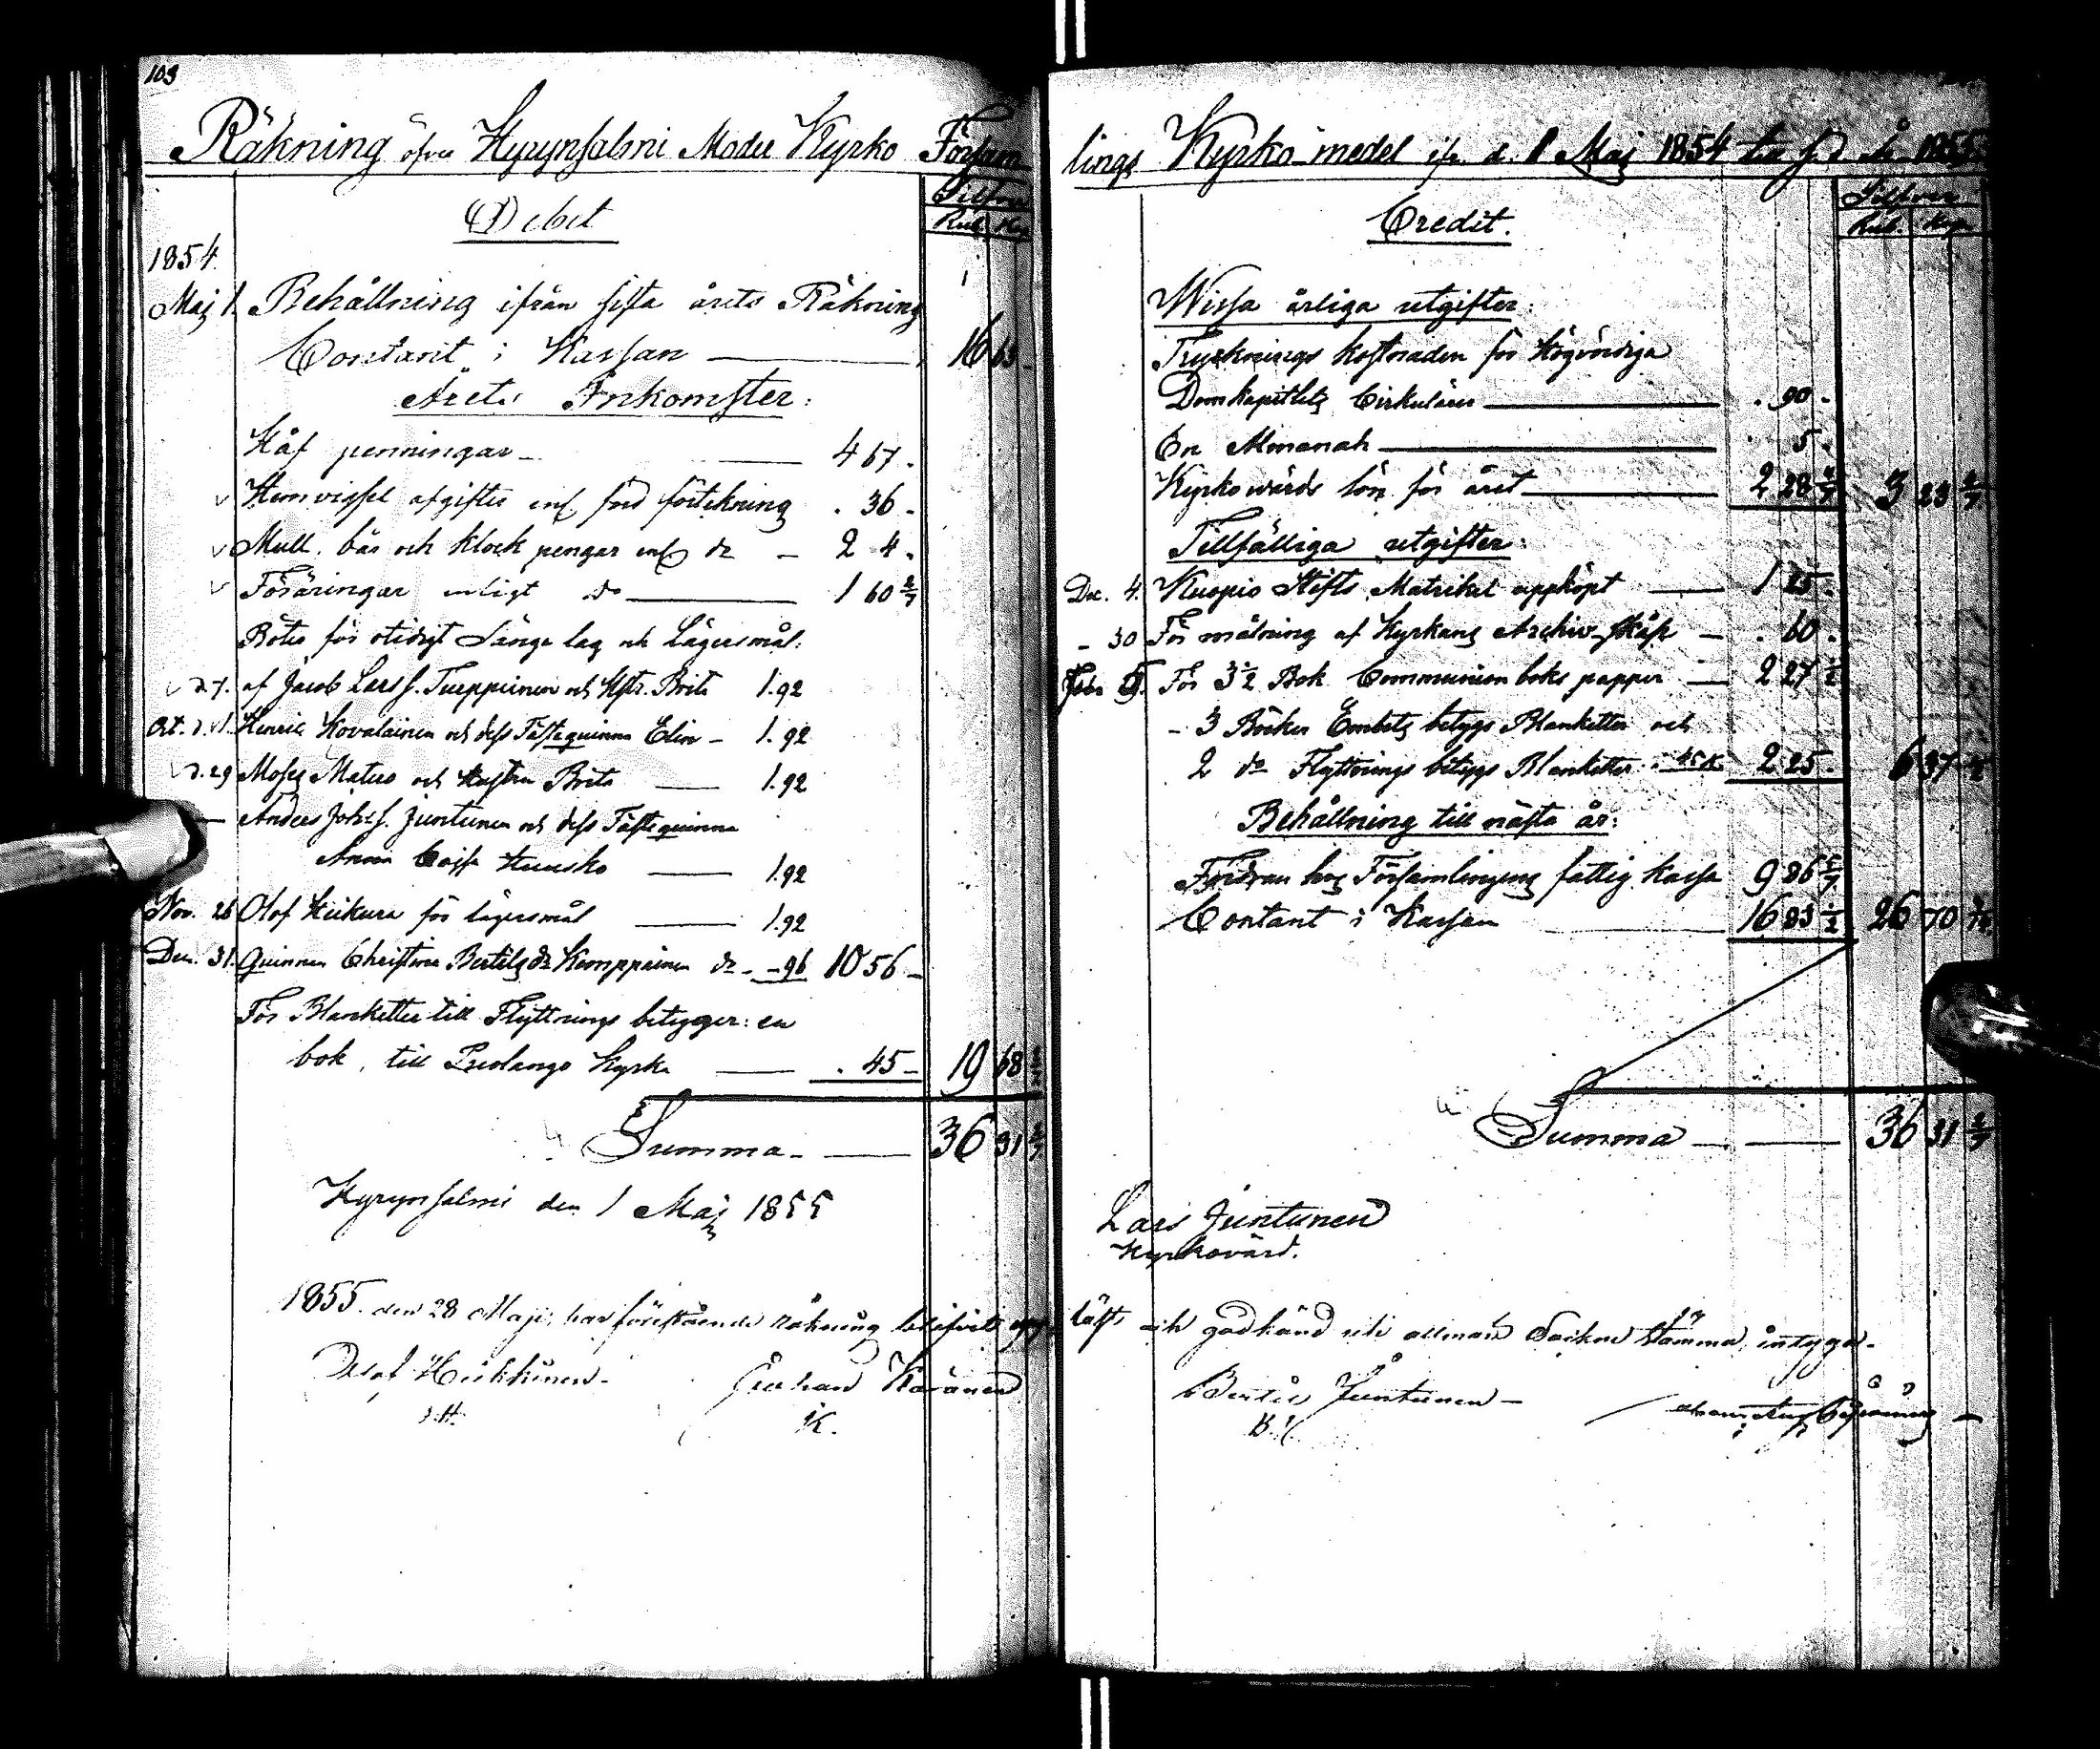 103
Räkning öfver Hyrynsalmi Moder Kyrko Försam
Debit
Silfver
Rub. Kop.
1854.
Maj 1. Behållning ifrån sista årets Räkning
Contant i Kassan — 16 63 -
Årets Inkomster:
Håf penningar — 4 67.
Hemvigsel afgifter enl. förteckning . 36 -
Mull, bår och klock pengar enl. do — 2 4.
Föräringar enligt do — 1 60 2/7
Böter för otidigt Sänga lag och Lägersmål:
d. 7. af Jacob Larss. Tueppinen och Hstr. Brita 1.92
Oct. d. 1. Henric Kovalainen och dess Fästequinna Elin — 1.92
d. 29 Moses Matero och Hustru Brita — 1.92
Anders Johss. Juntunen och dess Fästequinna
Anna Caisa — 1.92
Nov. 26 Olof Heikura för lägersmål — 1.92
Dec. 31. Quinnan Christina Bertilsdr Kemppainen do - -96 10 56 -
För Blanketter till Flyttnings betyger: en
bok, till Puolango Kyrka — . 45 - 19 68 2/7
Summa — 36 31 2/7
Hyrynsalmi den 1 Maj 1855
1855 den 28 Maji, har föreståendе räkning blifvit upp
Olof Heikkinen Johan Karänen
K.
lings Kyrko-medel ifr. d. 1 Maj 1854 till s. d. år 1855.
Credit.
Silfver
Rub. Kop.
Wissa årliga utgifter:
Trycknings kostnaden för Högvördiga
Domkapitlets Cirkulärer — . 90 -
En Almanah — . 5.
Kyrkowärds lön för året — 2 28 4/7 3 23 4/7
Tillfälliga utgifter:
Dec. 4. Kuopio Stifts Matrikel uppköpt — 1 25.
- 30 För målning af Kyrkans Archiv-skåp — . 60.
Febr. För 3 1/2 Bok Communion boks papper — 2 27 1/2
- 3 Böcker Embets betygs Blanketter och
2 do Flyttnings betygs Blanketter a 45 k. 2 25. 6 37 1/2
Behållning till nästa år:
Fordran hos Församlingens fattig kassa 9 86 5/7
Contant i Kassan — 16 83 1/2 26 70 3/14
Summa — 36 31 2/7
Lars Juntunen
Kyrkovärd.
läst och godkänd uti allmän Sockne stämma, intyga -
Bertil Juntunen -